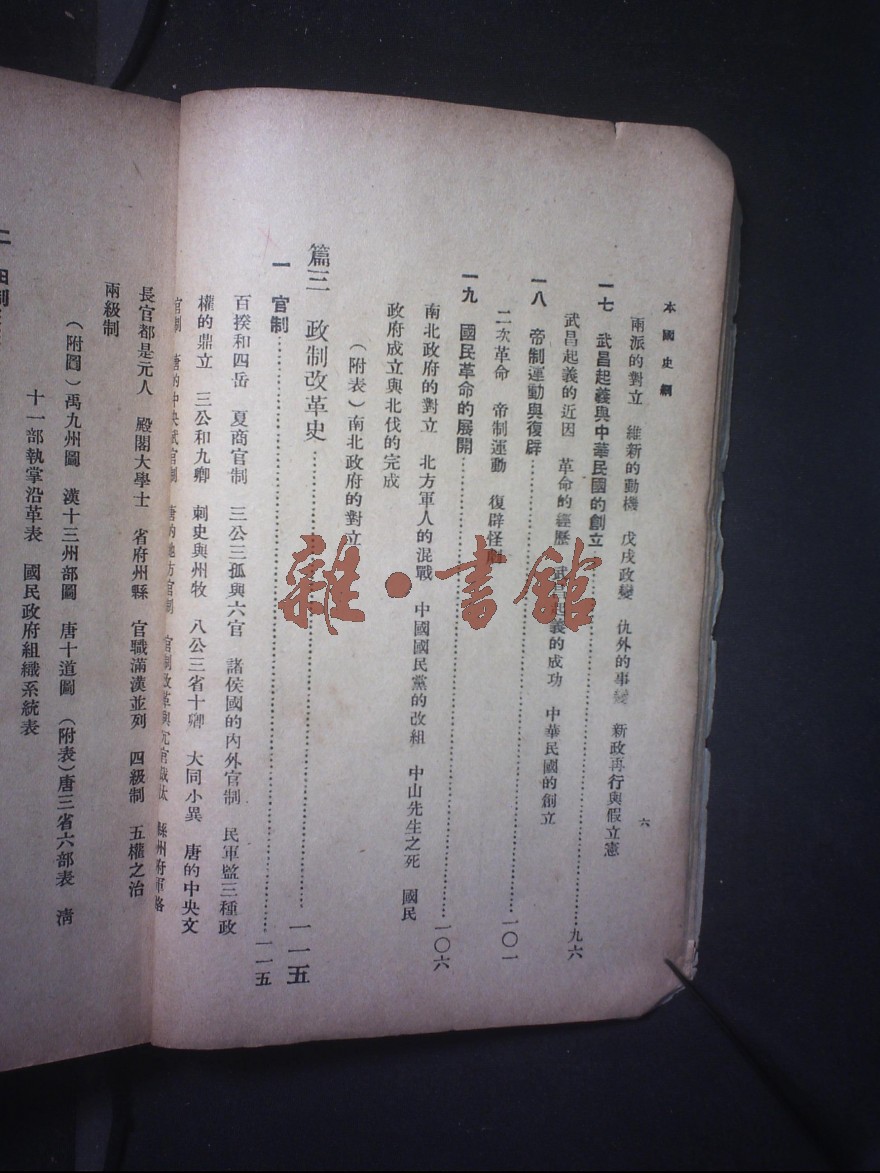 本國史綱
六
兩派的對立　維新的動機　戊戌政變　仇外的事變　新政再行與假立憲
一七　武昌起義與中華民國的創立……九六
武昌起義的近因　革命的經歷　武昌起義的成功　中華民國的創立
一八　帝制運動與復辟……一〇一
二次革命　帝制運動　復辟怪劇
一九　國民革命的展開……一〇六
南北政府的對立　北方軍人的混戰　中國國民黨的改組　中山先生之死　國民
政府成立與北伐的完成
（附表）南北政府的對立
篇三　政制改革史……一一五
一　官制……一一五
百揆和四岳　夏商官制　三公三孤與六官　諸侯國的內外官制　民軍監三種政
權的鼎立　三公和九卿　刺史與州牧　八公三省十卿　大同小異　唐的中央文
官制　唐的中央武官制　唐的地方官制　官制改革與冗官裁汰　縣州府軍路
長官都是元人　殿閣大學士　省府州縣　官職滿漢並列　四級制　五權之治
兩級制
（附圖）禹九州圖　漢十三州部圖　唐十道圖　（附表）唐三省六部表　清
十一部執掌沿革表　國民政府組織系統表
二　田制
雜·書館